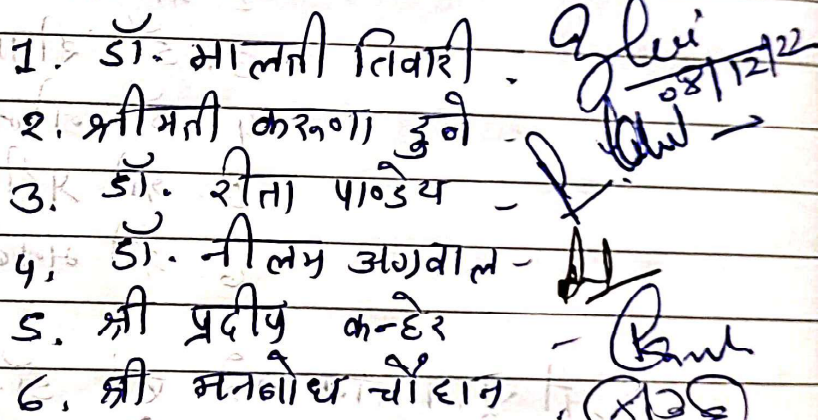 1. डॉ. मालती तिवारी -
08/12/22
2. श्रीमती करूणा दुबे -
3. डॉ. रीता पाण्डेय -
4. डॉ. नीलम अग्रवाल -
5. श्री प्रदीप कन्हेर -
6. श्री मनबोध चौहान -